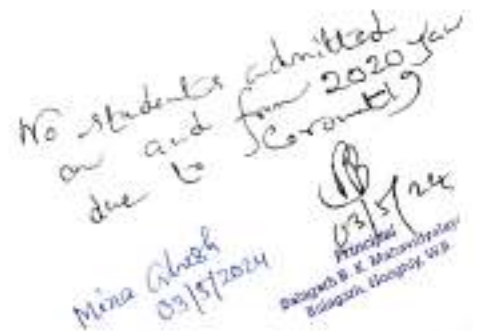 No students admitted
on and from 2020 year
due to
03/5/24
Mina Ghosh
03/5/2024
Principal
Balagarh B. K. Mahavidyalay
Balagarh, Hooghly, W.B.